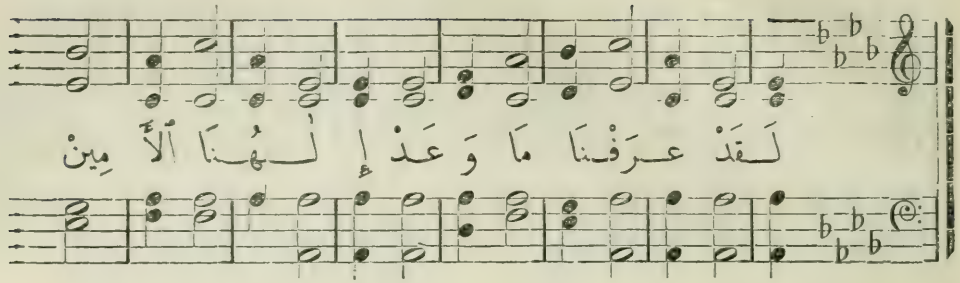 لَقَدْ عَرَفْنَا مَا وَعَدْ إِلٰهُنَا ٱلْأَمِينْ